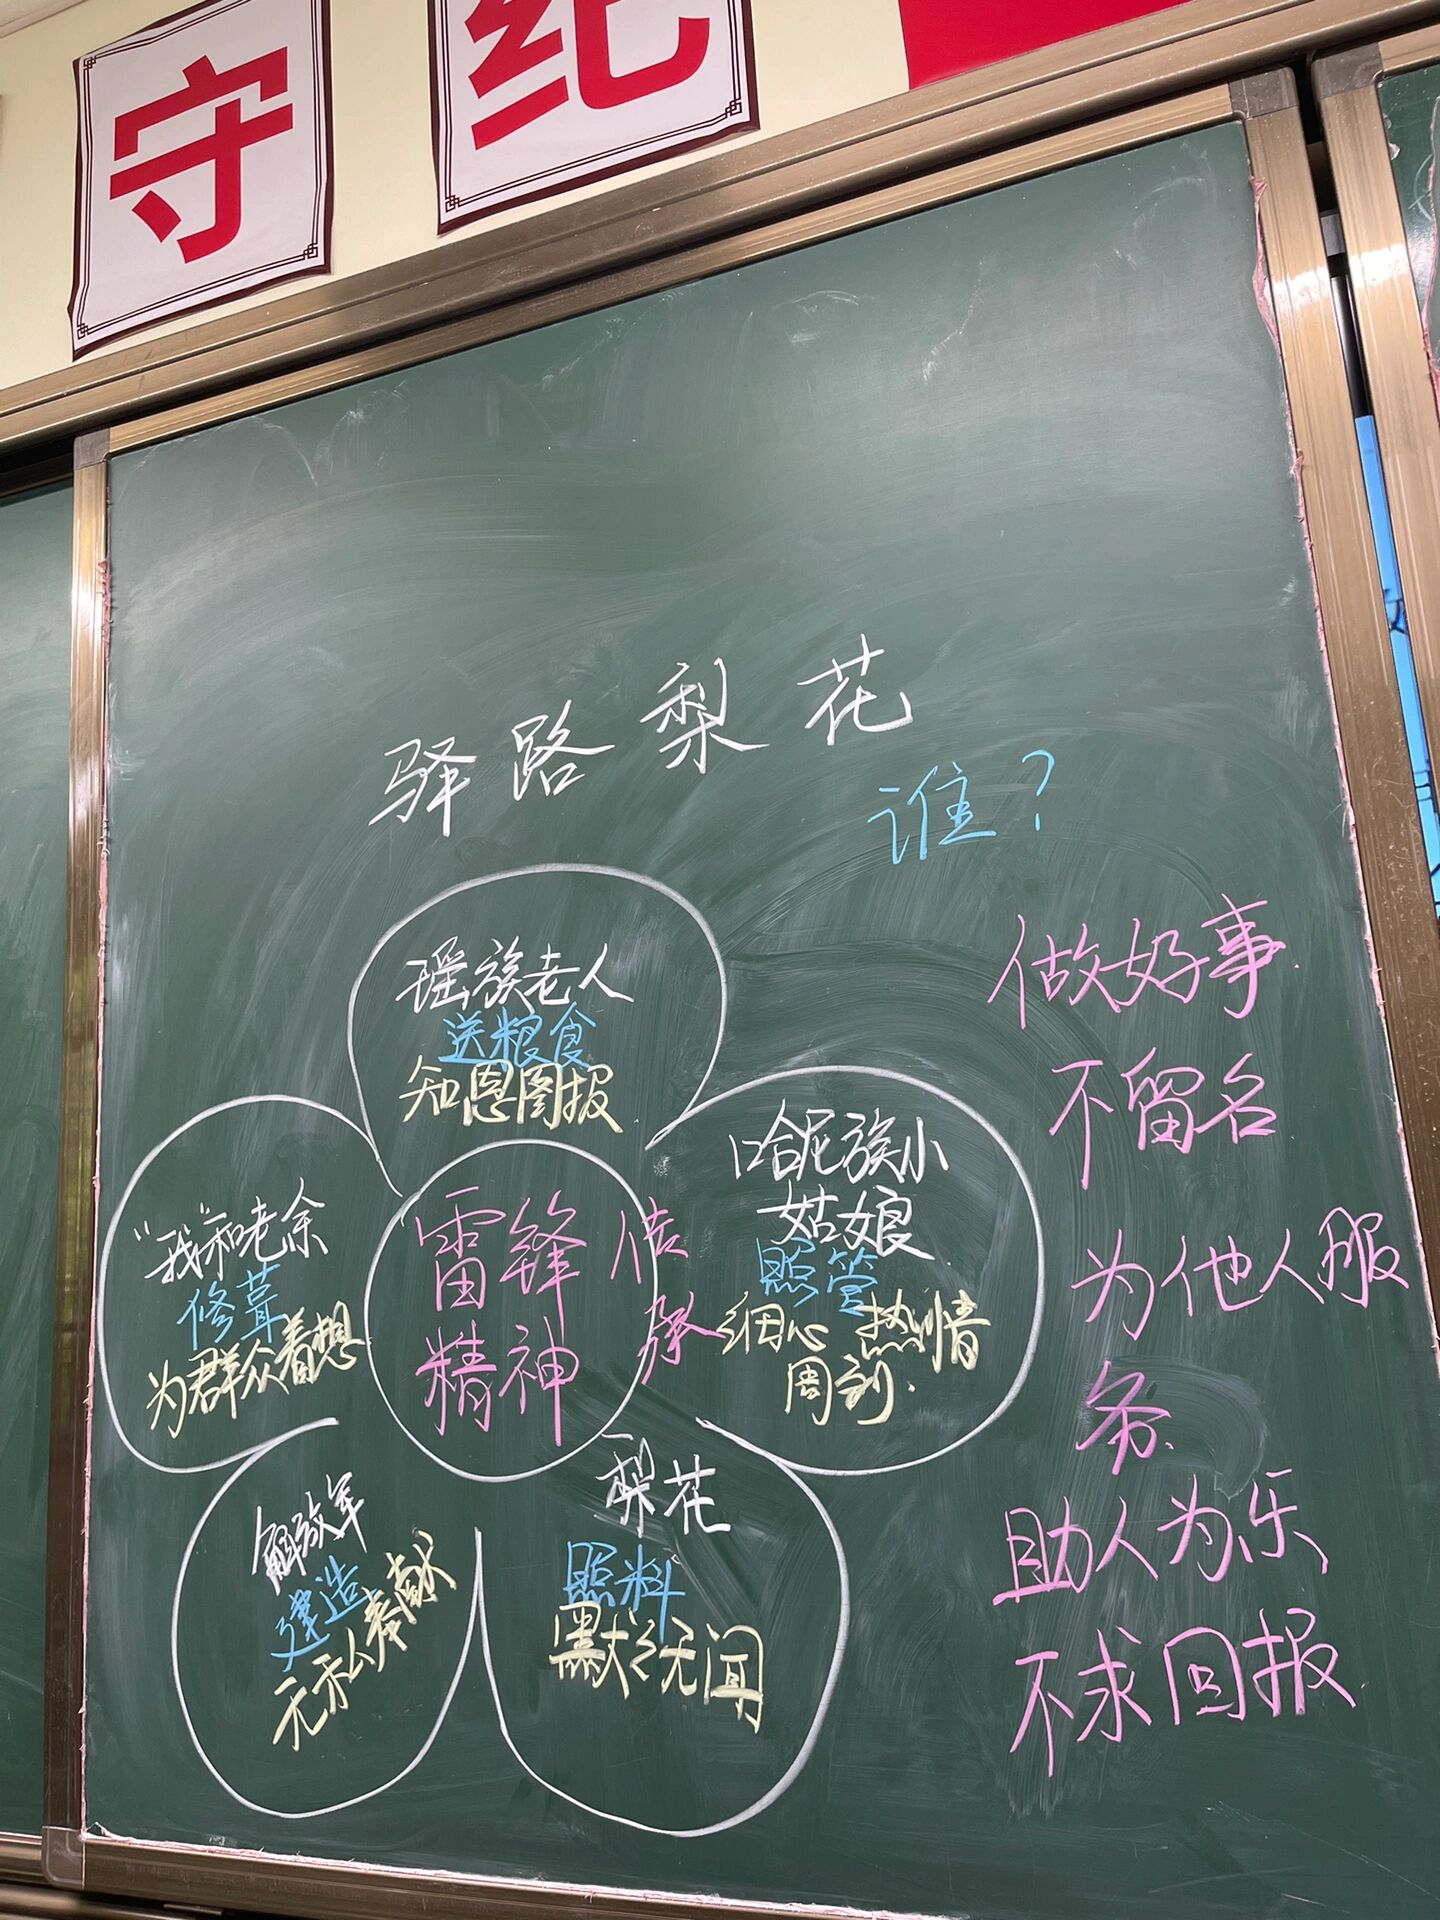 守纪
驿路梨花
谁？
瑶族老人
送粮食
知恩图报
"我"和老余
修葺
为群众着想
雷锋
精神
传
承
哈尼族小
姑娘
照管
细心 热情
周到.
解放军
建造
无私奉献
梨花
照料
默默无闻
做好事
不留名
为他人服
务
助人为乐
不求回报